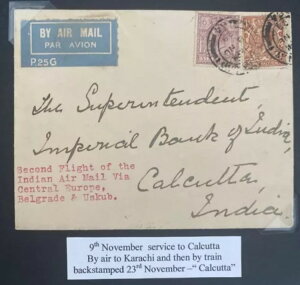 BY AIR MAIL
PAR AVION
P.25G
The Superintendent,
Imperial Bank of India,
Calcutta,
India.
Second Flight of the
Indian Air Mail Via
Central Europe,
Belgrade & Uskub.
9th November service to Calcutta
By air to Karachi and then by train
backstamped 23rd November –“ Calcutta”